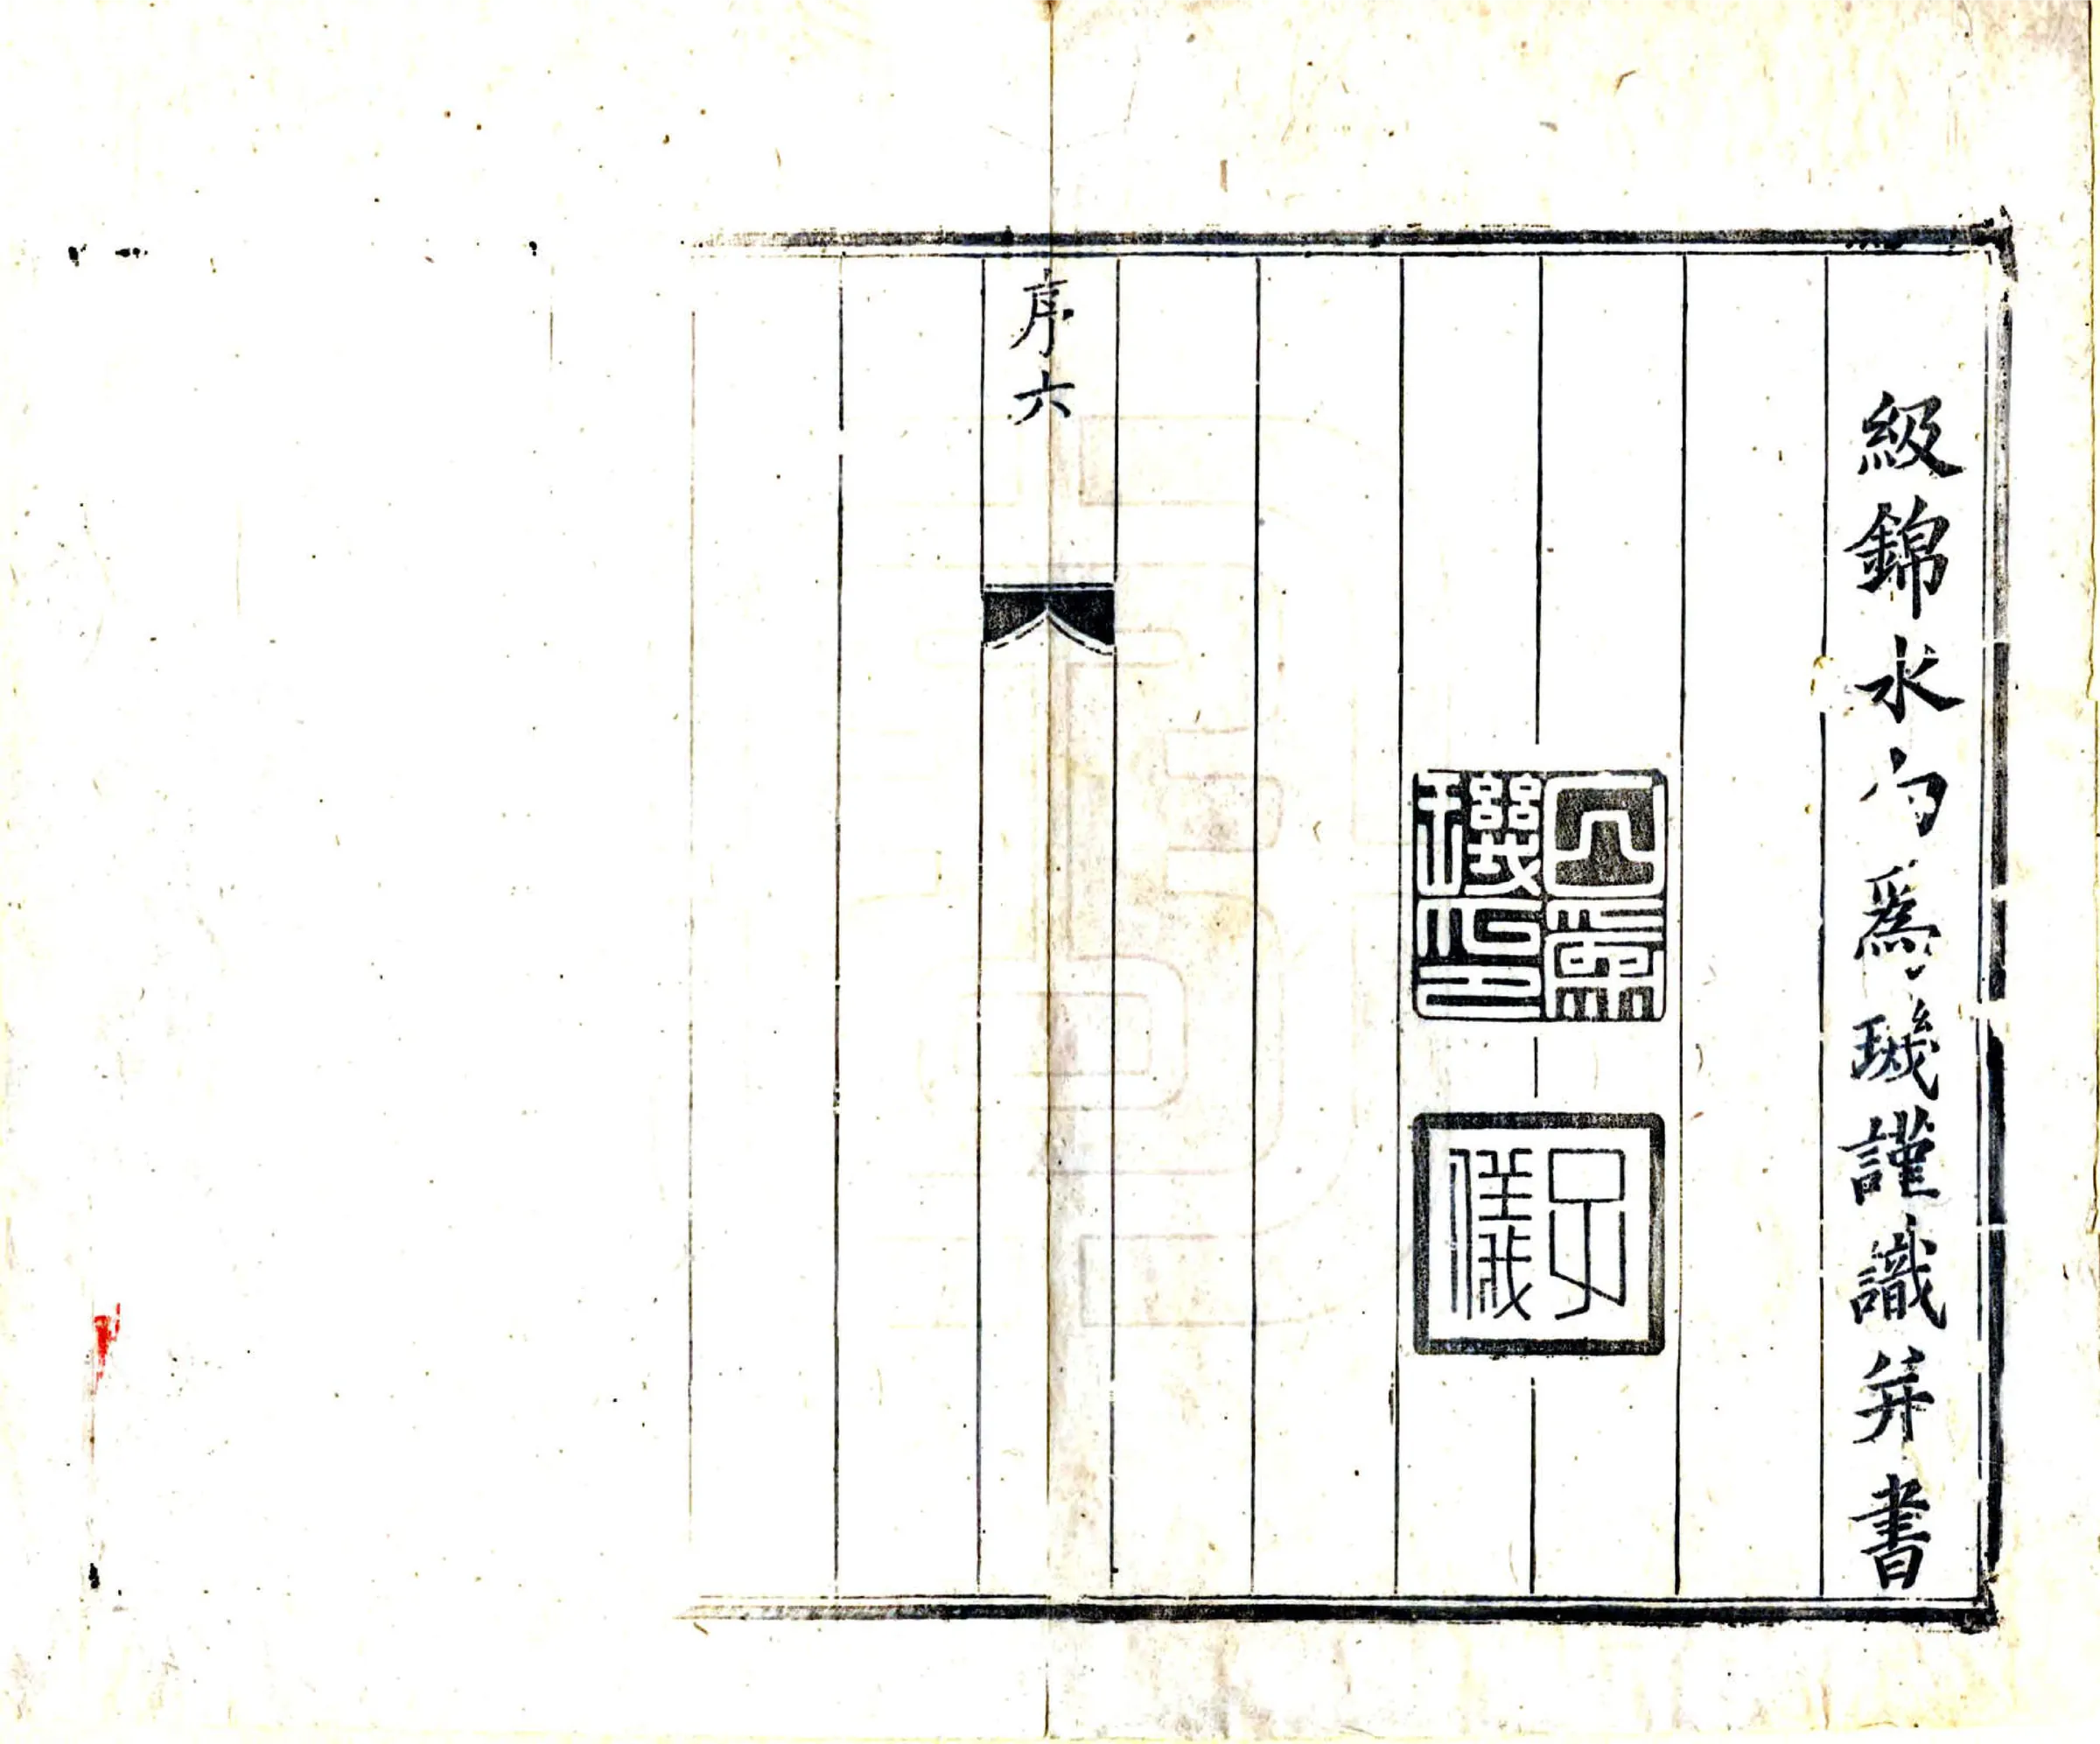 級錦水向爲璣謹識并書
向爲璣印
子儀
序 六